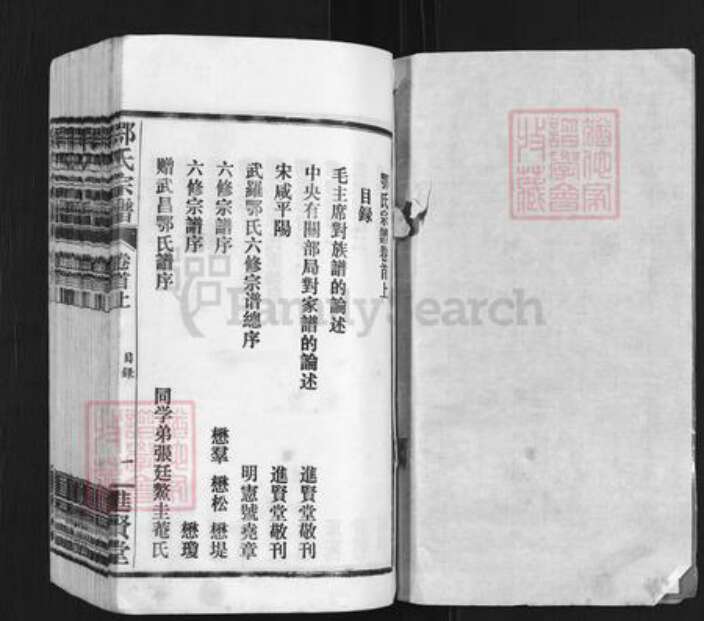 鄂氏宗譜卷首上
目録
毛主席對族譜的論述
中央有關部局對家譜的論述 進賢堂敬刊
宋咸平陽 進賢堂敬刊
武羅鄂氏六修宗谱總序 明憲號堯章
六修宗譜序 懋羣 懋松 懋堤
六修宗譜序 懋瓊
赠武昌鄂氏譜序 同学弟張廷鰲圭菴氏
鄂氏宗譜 卷首上 目録 一 進賢堂
FamilySearch